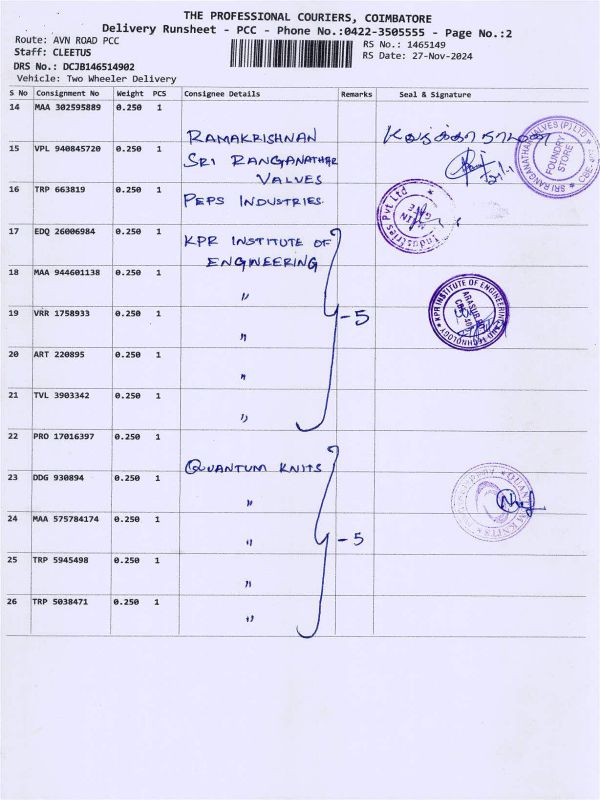 THE PROFESSIONAL COURIERS, COIMBATORE
Delivery Runsheet - PCC - Phone No.:0422-3505555 - Page No.:2
Route: AVN ROAD PCC
RS No.: 1465149
Staff: CLEETUS
RS Date: 27-Nov-2024
DRS No.: DCJB146514902
Vehicle: Two Wheeler Delivery
S No Consignment No Weight PCS Consignee Details Remarks Seal & Signature
14 MAA 302595889 0.250 1 RAMAKRISHNAN
15 VPL 940845720 0.250 1 SRI RANGANATHAR
VALVES
SRI RANGANATHAR VALVES (P) LTD
FOUNDRY
STORE
16 TRP 663819 0.250 1 PEPS INDUSTRIES.
Industries Pvt Ltd
MAIN
GATE
17 EDQ 26006984 0.250 1 KPR INSTITUTE OF
ENGINEERING
18 MAA 944601138 0.250 1 "
19 VRR 1758933 0.250 1 " - 5
KPR INSTITUTE OF ENGINEERING AND TECHNOLOGY
ARASUR
20 ART 220895 0.250 1 "
21 TVL 3903342 0.250 1 "
22 PRO 17016397 0.250 1 QUANTUM KNITS
23 DDG 930894 0.250 1 "
24 MAA 575784174 0.250 1 " - 5
25 TRP 5945498 0.250 1 "
26 TRP 5038471 0.250 1 "